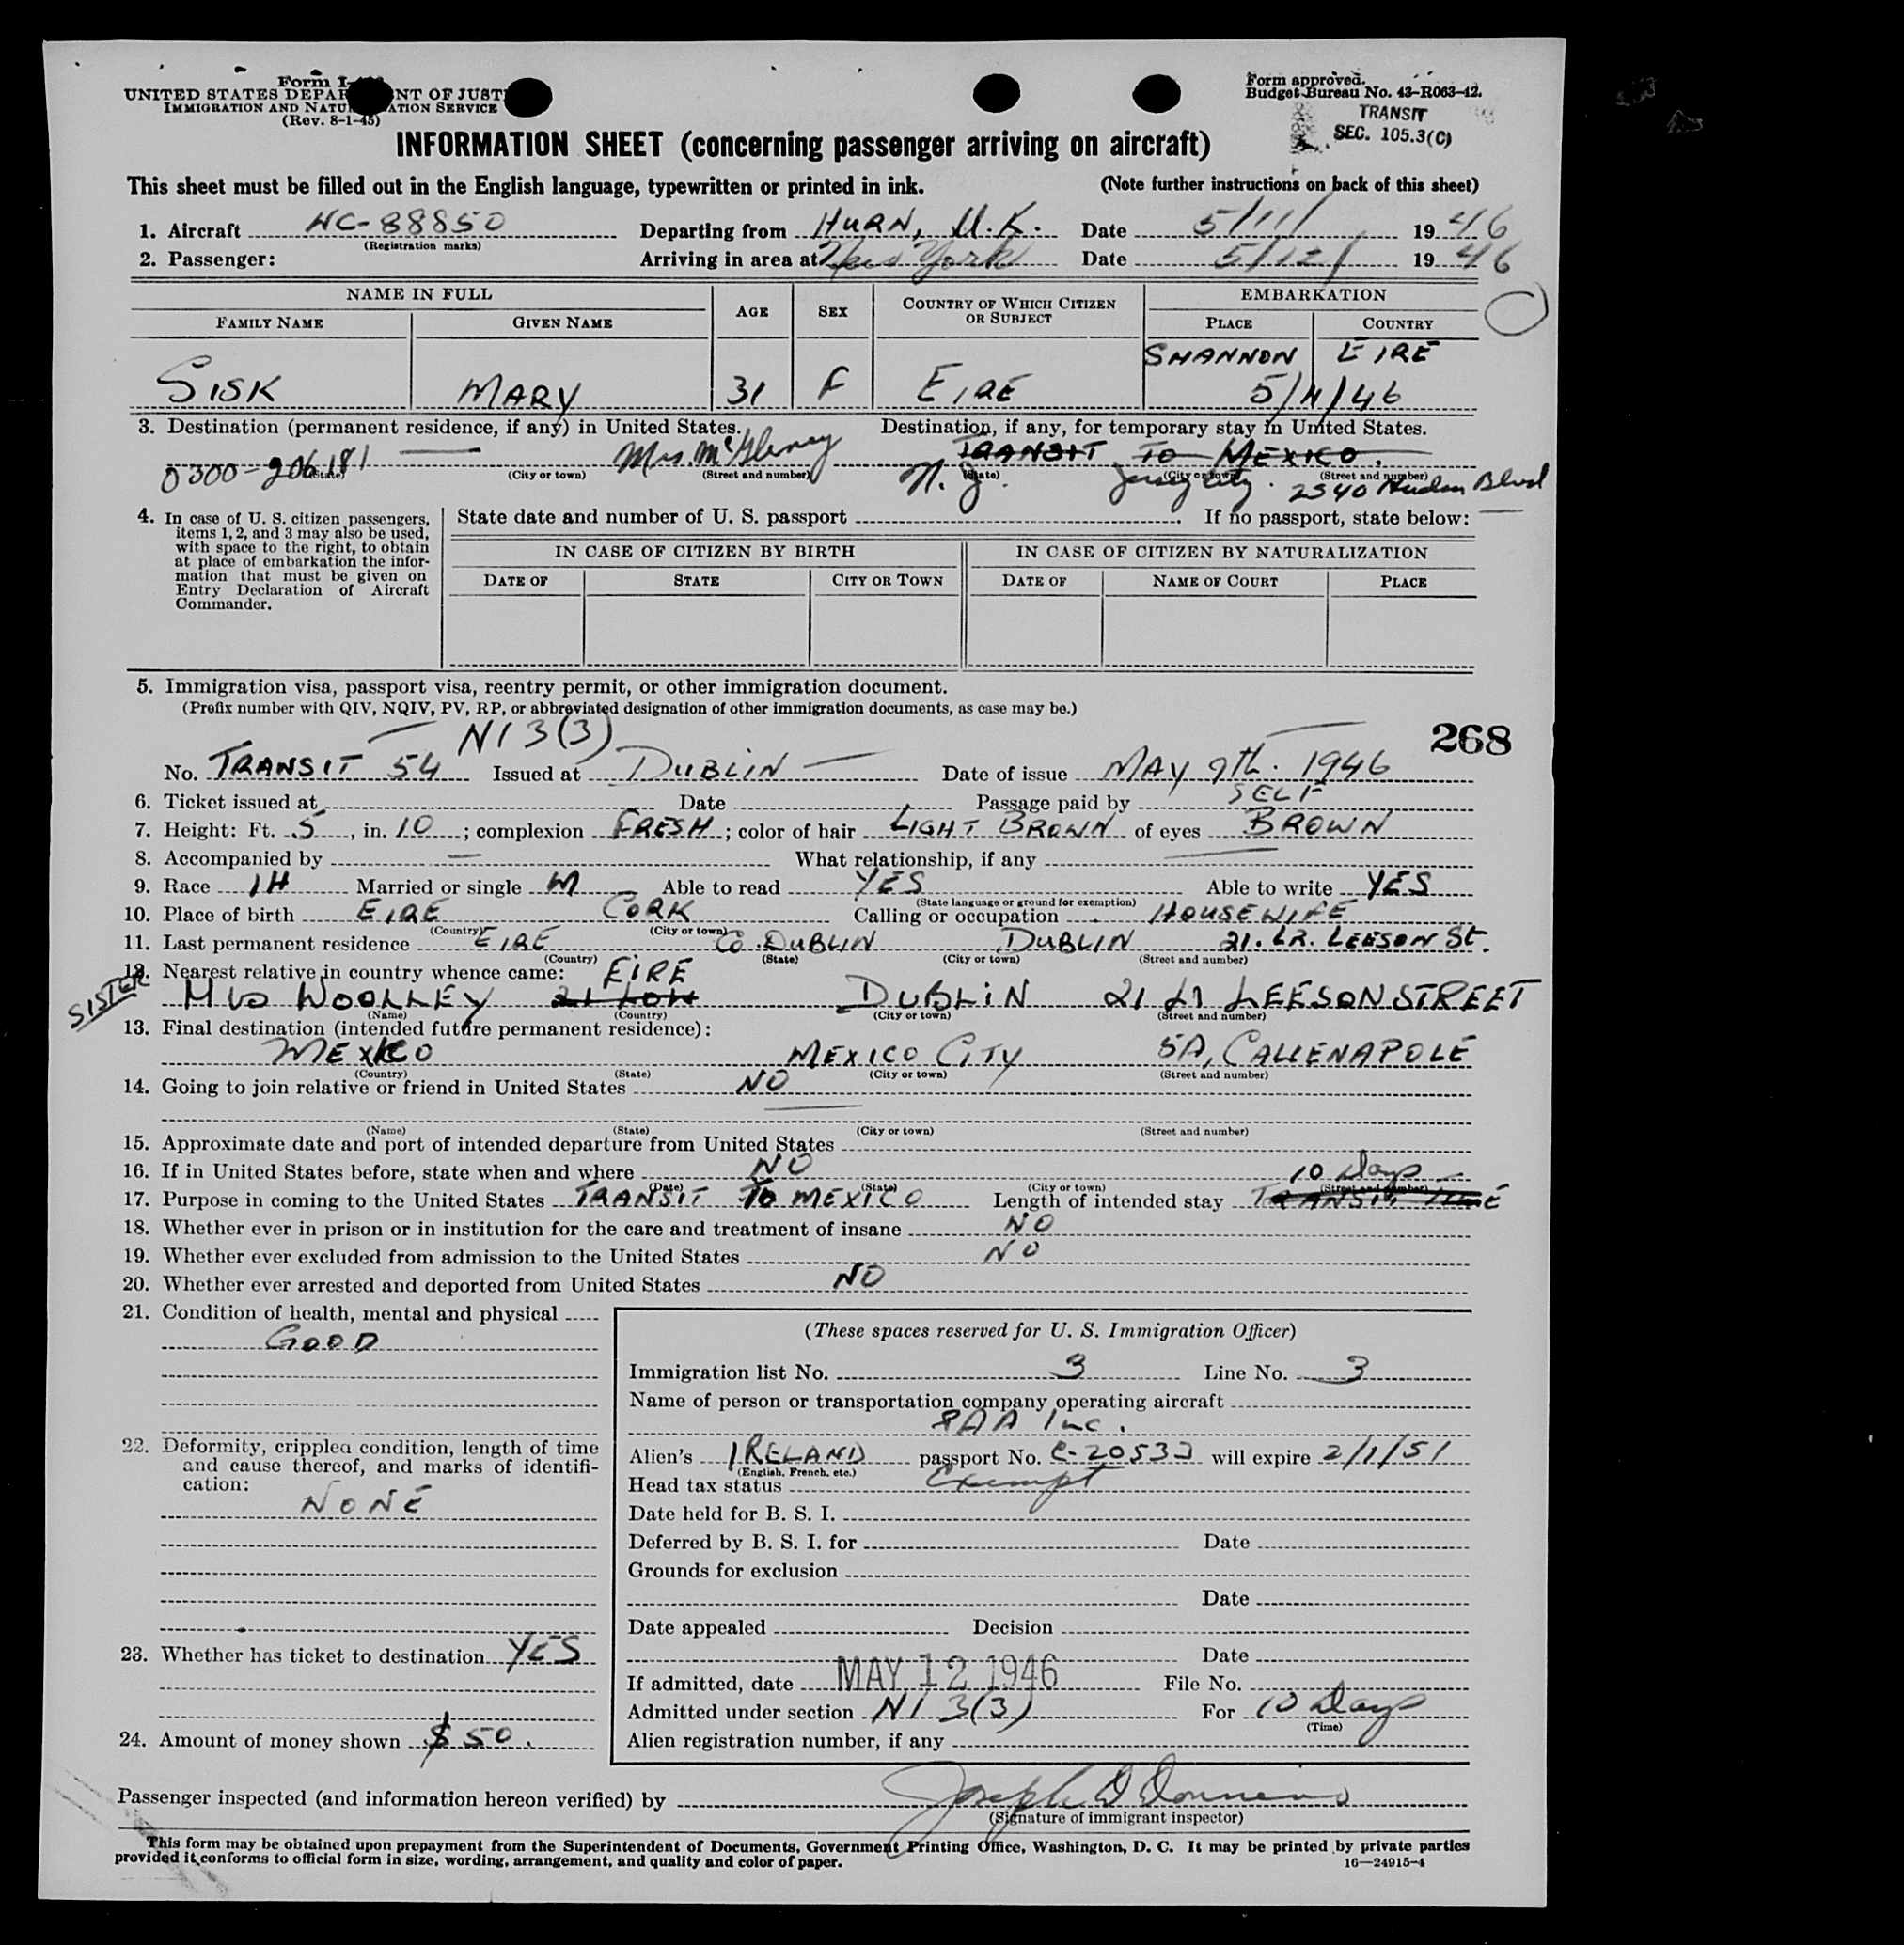 Form I-
UNITED STATES DEPAR NT OF JUST
IMMIGRATION AND NATU ATION SERVICE
(Rev. 8-1-45)
Form approved.
Budget Bureau No. 43-R063-12.
TRANSIT
SEC. 105.3(C)
INFORMATION SHEET (concerning passenger arriving on aircraft)
This sheet must be filled out in the English language, typewritten or printed in ink. (Note further instructions on back of this sheet)
1. Aircraft NC-88850 Departing from HURN, U.K. Date 5/11/ 1946
(Registration marks)
2. Passenger: Arriving in area at New York Date 5/12/ 1946
NAME IN FULL AGE SEX COUNTRY OF WHICH CITIZEN OR SUBJECT EMBARKATION
FAMILY NAME GIVEN NAME PLACE COUNTRY
SHANNON EIRE
SISK MARY 31 F EIRE 5/11/46
3. Destination (permanent residence, if any) in United States. Destination, if any, for temporary stay in United States.
TRANSIT TO MEXICO.
0300-206181 Mrs. N. J. Jersey City. 2540 Hudson Blvd
(State) (City or town) (Street and number) (State) (City or town) (Street and number)
4. In case of U. S. citizen passengers, items 1, 2, and 3 may also be used, with space to the right, to obtain at place of embarkation the information that must be given on Entry Declaration of Aircraft Commander.
State date and number of U. S. passport . If no passport, state below:
IN CASE OF CITIZEN BY BIRTH IN CASE OF CITIZEN BY NATURALIZATION
DATE OF STATE CITY OR TOWN DATE OF NAME OF COURT PLACE
5. Immigration visa, passport visa, reentry permit, or other immigration document.
(Prefix number with QIV, NQIV, PV, RP, or abbreviated designation of other immigration documents, as case may be.)
NI 3(3) 268
No. TRANSIT 54 Issued at DUBLIN Date of issue MAY 9th. 1946
6. Ticket issued at Date Passage paid by SELF
7. Height: Ft. 5, in. 10; complexion FRESH; color of hair LIGHT BROWN of eyes BROWN
8. Accompanied by — What relationship, if any —
9. Race IH Married or single M Able to read YES Able to write YES
(State language or ground for exemption)
10. Place of birth EIRE CORK Calling or occupation HOUSEWIFE
(Country) (City or town)
11. Last permanent residence EIRE CO. DUBLIN DUBLIN 21. LR. LEESON St.
(Country) (State) (City or town) (Street and number)
12. Nearest relative in country whence came: EIRE
SISTER MRS WOOLLEY 21 LOW DUBLIN 21 LR LEESON STREET
(Name) (Country) (City or town) (Street and number)
13. Final destination (intended future permanent residence):
MEXICO MEXICO CITY 5A, CALLENAPOLE
(Country) (State) (City or town) (Street and number)
14. Going to join relative or friend in United States NO
(Name) (State) (City or town) (Street and number)
15. Approximate date and port of intended departure from United States
16. If in United States before, state when and where NO 10 Days
(Date) (State) (City or town) (Street and number)
17. Purpose in coming to the United States TRANSIT TO MEXICO Length of intended stay TRANSIT TIME
18. Whether ever in prison or in institution for the care and treatment of insane NO
19. Whether ever excluded from admission to the United States NO
20. Whether ever arrested and deported from United States NO
21. Condition of health, mental and physical
GOOD
22. Deformity, crippled condition, length of time and cause thereof, and marks of identification:
NONE
23. Whether has ticket to destination YES
24. Amount of money shown $50.
(These spaces reserved for U. S. Immigration Officer)
Immigration list No. 3 Line No. 3
Name of person or transportation company operating aircraft
PAA Inc.
Alien's IRELAND passport No. C-20533 will expire 2/1/51
(English, French, etc.)
Head tax status Exempt
Date held for B. S. I.
Deferred by B. S. I. for Date
Grounds for exclusion
Date
Date appealed Decision
Date
If admitted, date MAY 12 1946 File No.
Admitted under section NI 3(3) For 10 Days
(Time)
Alien registration number, if any
Passenger inspected (and information hereon verified) by Joseph D
(Signature of immigrant inspector)
This form may be obtained upon prepayment from the Superintendent of Documents, Government Printing Office, Washington, D. C. It may be printed by private parties
provided it conforms to official form in size, wording, arrangement, and quality and color of paper. 16—24915-4